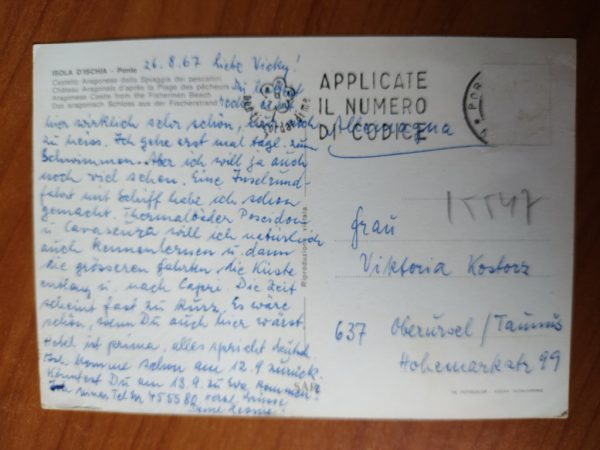 ISOLA D'ISCHIA - Ponte
Castello Aragonese dalla Spiaggia dei pescatori
Château Aragonais d'après la Plage des pêcheurs
Aragonese Castle from the Fishermen Beach
Das aragonisch Schloss aus der Fischerstrand
26.8.67 Liebe Vicky!
Die Insel
hier wirklich sehr schön, nur noch
zu heiss. Ich gehe erst mal tägl. zum
Schwimmen. Aber ich will ja auch
noch viel sehen. Eine Inselrund-
fahrt mit Schiff habe ich schon
gemacht. Thermalbäder Poseidon
u. Cavascura will ich natürlich
auch kennenlernen u. dann
die grösseren Fahrten, die Küste
entlang u. nach Capri. Die Zeit
scheint fast zu kurz. Es wäre
schön, wenn Du auch hier wärst.
Hotel ist prima, alles spricht deutsch.
Ich komme schon am 12.9. zurück.
Könntest Du am 13.9. zu kommen?
Tel 455580 Grüsse
Deine
APPLICATE
IL NUMERO
DI CODICE
Allemagna
15547
Frau
Viktoria Kostorz
637 Oberursel/Taunus
Hohemarkstr 99
Riproduzione vietata
SAR